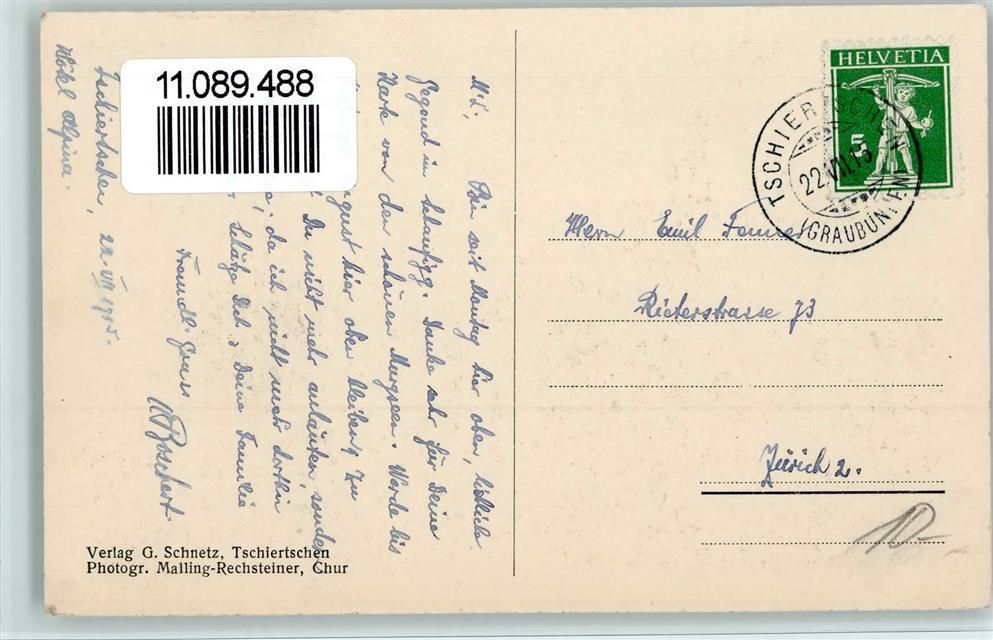 Hotel Alpina.
Tschiertschen, 22. VII 1915.
M. L.,
Bin seit Montag hier oben, liebliche
Gegend in Danke sehr für Deine
Karte von den schönen Murgseen. Werde bis
August hier oben bleiben,
Du nicht mehr anläuten,
da ich nicht mehr dorthin
Dich, Deine Familie
Freundl. Gruss
Verlag G. Schnetz, Tschiertschen
Photogr. Malling-Rechsteiner, Chur
11.089.488
HELVETIA
5
TSCHIERTSCHEN
22.VII.15
(GRAUBÜNDEN)
Herrn Emil
Rieterstrasse 73
Zürich 2.
10.-